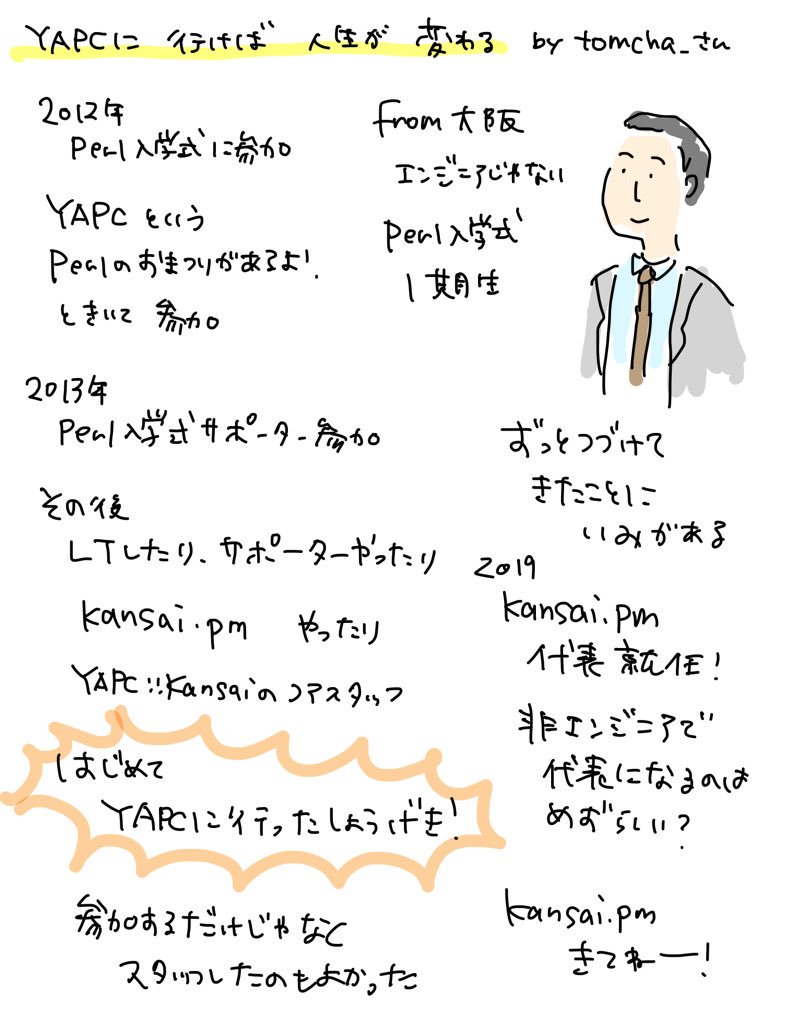 YAPCに 行けば 人生が 変わる by tomcha_さん
2012年
Perl入学式に参加
YAPC という
Perlのおまつりがあるよ!
ときいて 参加
From 大阪
エンジニアじゃない
Perl入学式
1期生
2013年
Perl入学式サポーター参加
その後
LTしたり、サポーターやったり
kansai.pm やったり
YAPC::Kansaiのコアスタッフ
はじめて
YAPCに行ったしょうげき!
参加するだけじゃなく
スタッフしたのもよかった
ずっとつづけて
きたことに
いみがある
2019
kansai.pm
代表就任!
非エンジニアで
代表になるのは
めずらしい?
kansai.pm
きてねー!